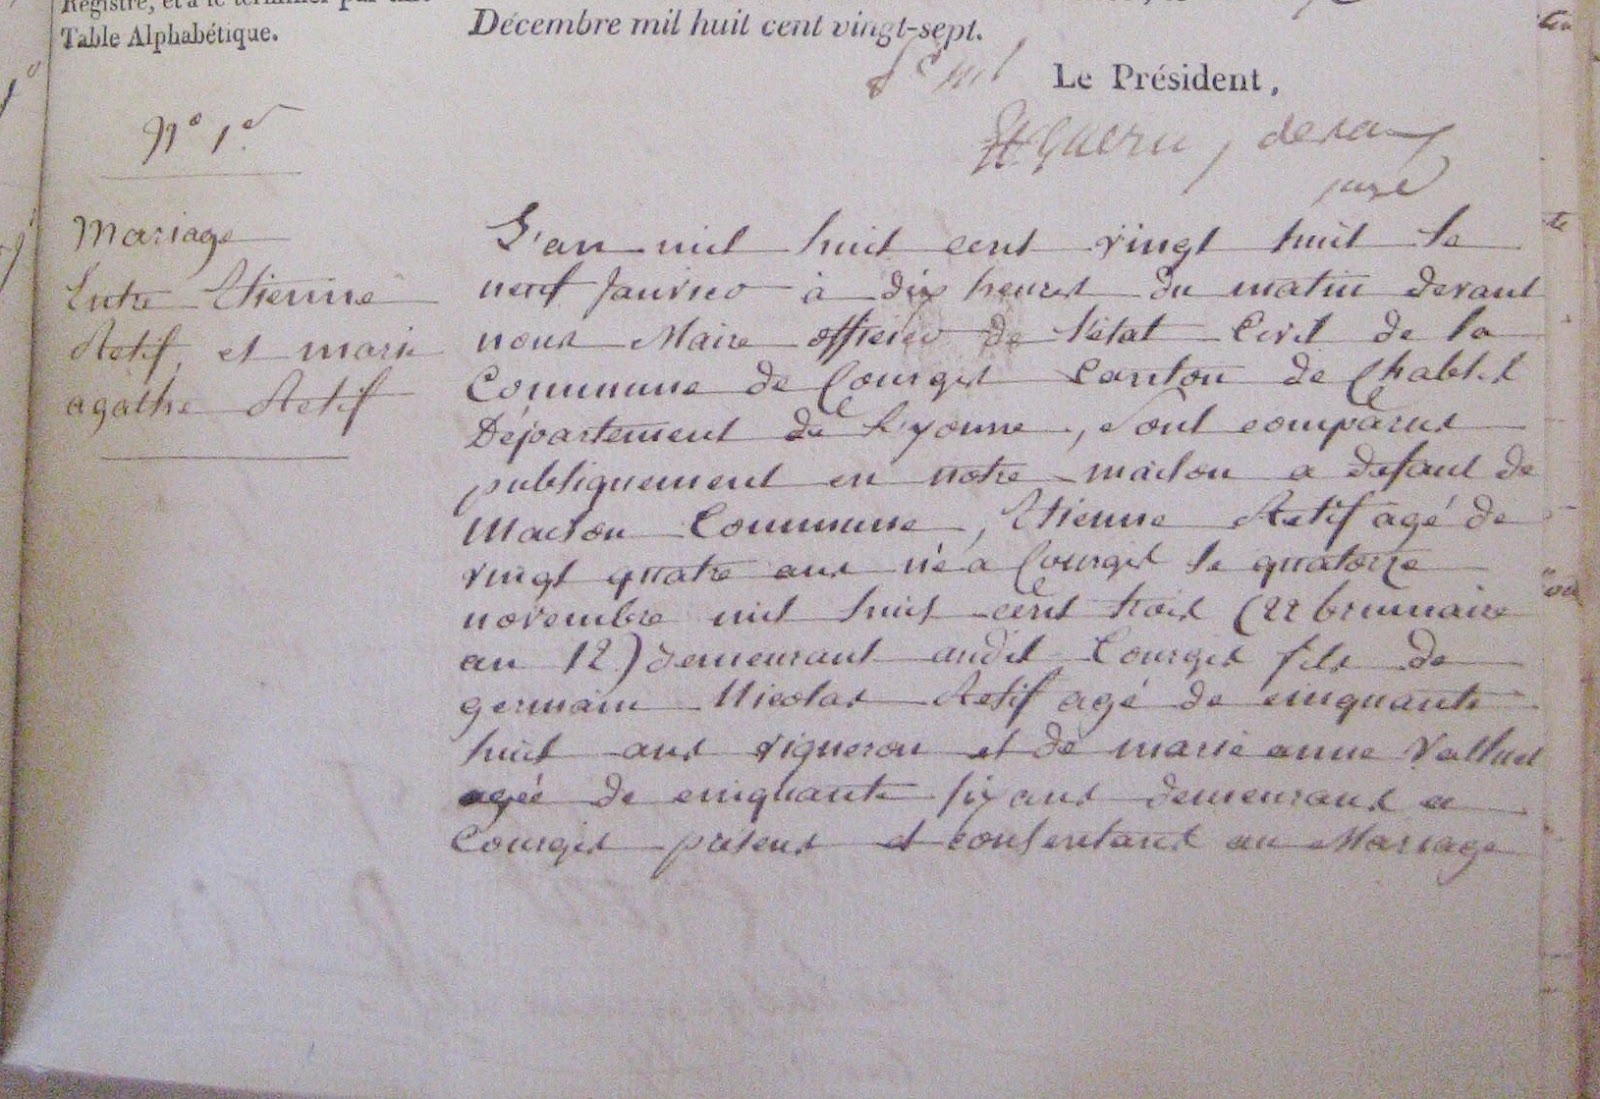 Registre, et à le terminer par une
Table Alphabétique.
Décembre mil huit cent vingt-sept.
Le Président,
N° 1er
juge
Mariage
Entre Etienne
Retif et marie
agathe Retif
L'an mil huit cent vingt huit le
neuf Janvier à dix heures du matin devant
nous Maire officier de l'état Civil de la
Commune de Courgis Canton de Chablis
Département de l'yonne, sont comparus
publiquement en notre maison a defaut de
Maison Commune, Etienne Retif agé de
vingt quatre ans né a Courgis le quatorze
novembre mil huit cent trois (22 brumaire
an 12) demeurant audit Courgis fils de
germain Nicolas Retif agé de cinquante
huit ans vigneron et de marie anne
agée de cinquante six ans demeurans a
Courgis présens et consentans au Mariage